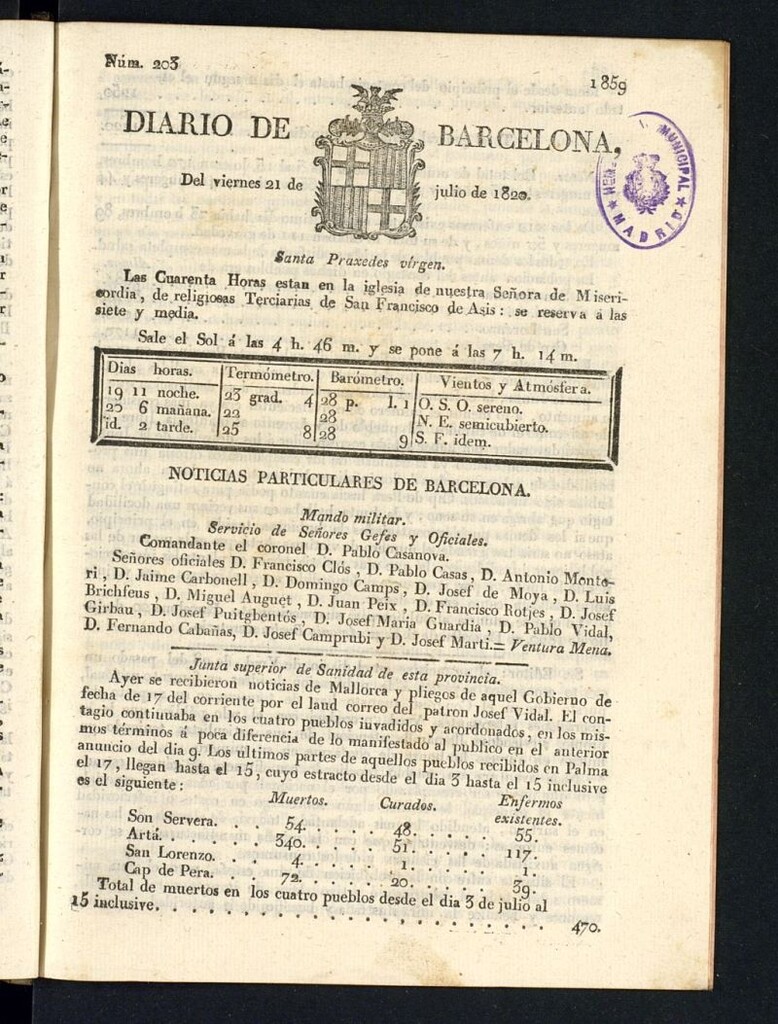 Núm. 203
1859
DIARIO DE BARCELONA,
Del viernes 21 de julio de 1820.
HEM MUNICIPAL
★ MADRID ★
Santa Praxedes vírgen.
Las Cuarenta Horas estan en la iglesia de nuestra Señora de Miseri-
cordia, de religiosas Terciarias de San Francisco de Asis: se reserva á las
siete y media.
Sale el Sol á las 4 h. 46 m. y se pone á las 7 h. 14 m.
Dias horas. Termómetro. Barómetro. Vientos y Atmósfera.
19 11 noche. 23 grad. 4 28 p. l. 1 O. S. O. sereno.
20 6 mañana. 22 28 N. E. semicubierto.
id. 2 tarde. 25 8 28 9 S. F. idem.
NOTICIAS PARTICULARES DE BARCELONA.
Mando militar.
Servicio de Señores Gefes y Oficiales.
Comandante el coronel D. Pablo Casanova.
Señores oficiales D. Francisco Clós, D. Pablo Casas, D. Antonio Monte-
ri, D. Jaime Carbonell, D. Domingo Camps, D. Josef de Moya, D. Luis
Brichfeus, D. Miguel Auguet, D. Juan Peix, D. Francisco Rotjes, D. Josef
Girbau, D. Josef Puitgbentós, D. Josef Maria Guardia, D. Pablo Vidal,
D. Fernando Cabañas, D. Josef Camprubi y D. Josef Marti.= Ventura Mena.
Junta superior de Sanidad de esta provincia.
Ayer se recibieron noticias de Mallorca y pliegos de aquel Gobierno de
fecha de 17 del corriente por el laud correo del patron Josef Vidal. El con-
tagio continuaba en los cuatro pueblos invadidos y acordonados, en los mis-
mos términos á poca diferencia de lo manifestado al publico en el anterior
anuncio del dia 9. Los últimos partes de aquellos pueblos recibidos en Palma
el 17, llegan hasta el 15, cuyo estracto desde el dia 3 hasta el 15 inclusive
es el siguiente:
Muertos. Curados. Enfermos
existentes.
Son Servera. . . 54. . . . . . 48. . . . . . 55.
Artá. . . . . . 340. . . . . . 51. . . . . . 117.
San Lorenzo. . . 4. . . . . . 1. . . . . . 1.
Cap de Pera. . . 72. . . . . . 20. . . . . . 39.
Total de muertos en los cuatro pueblos desde el dia 3 de julio al
15 inclusive. . . . . . . . . . . . . . . . . . . . 470.